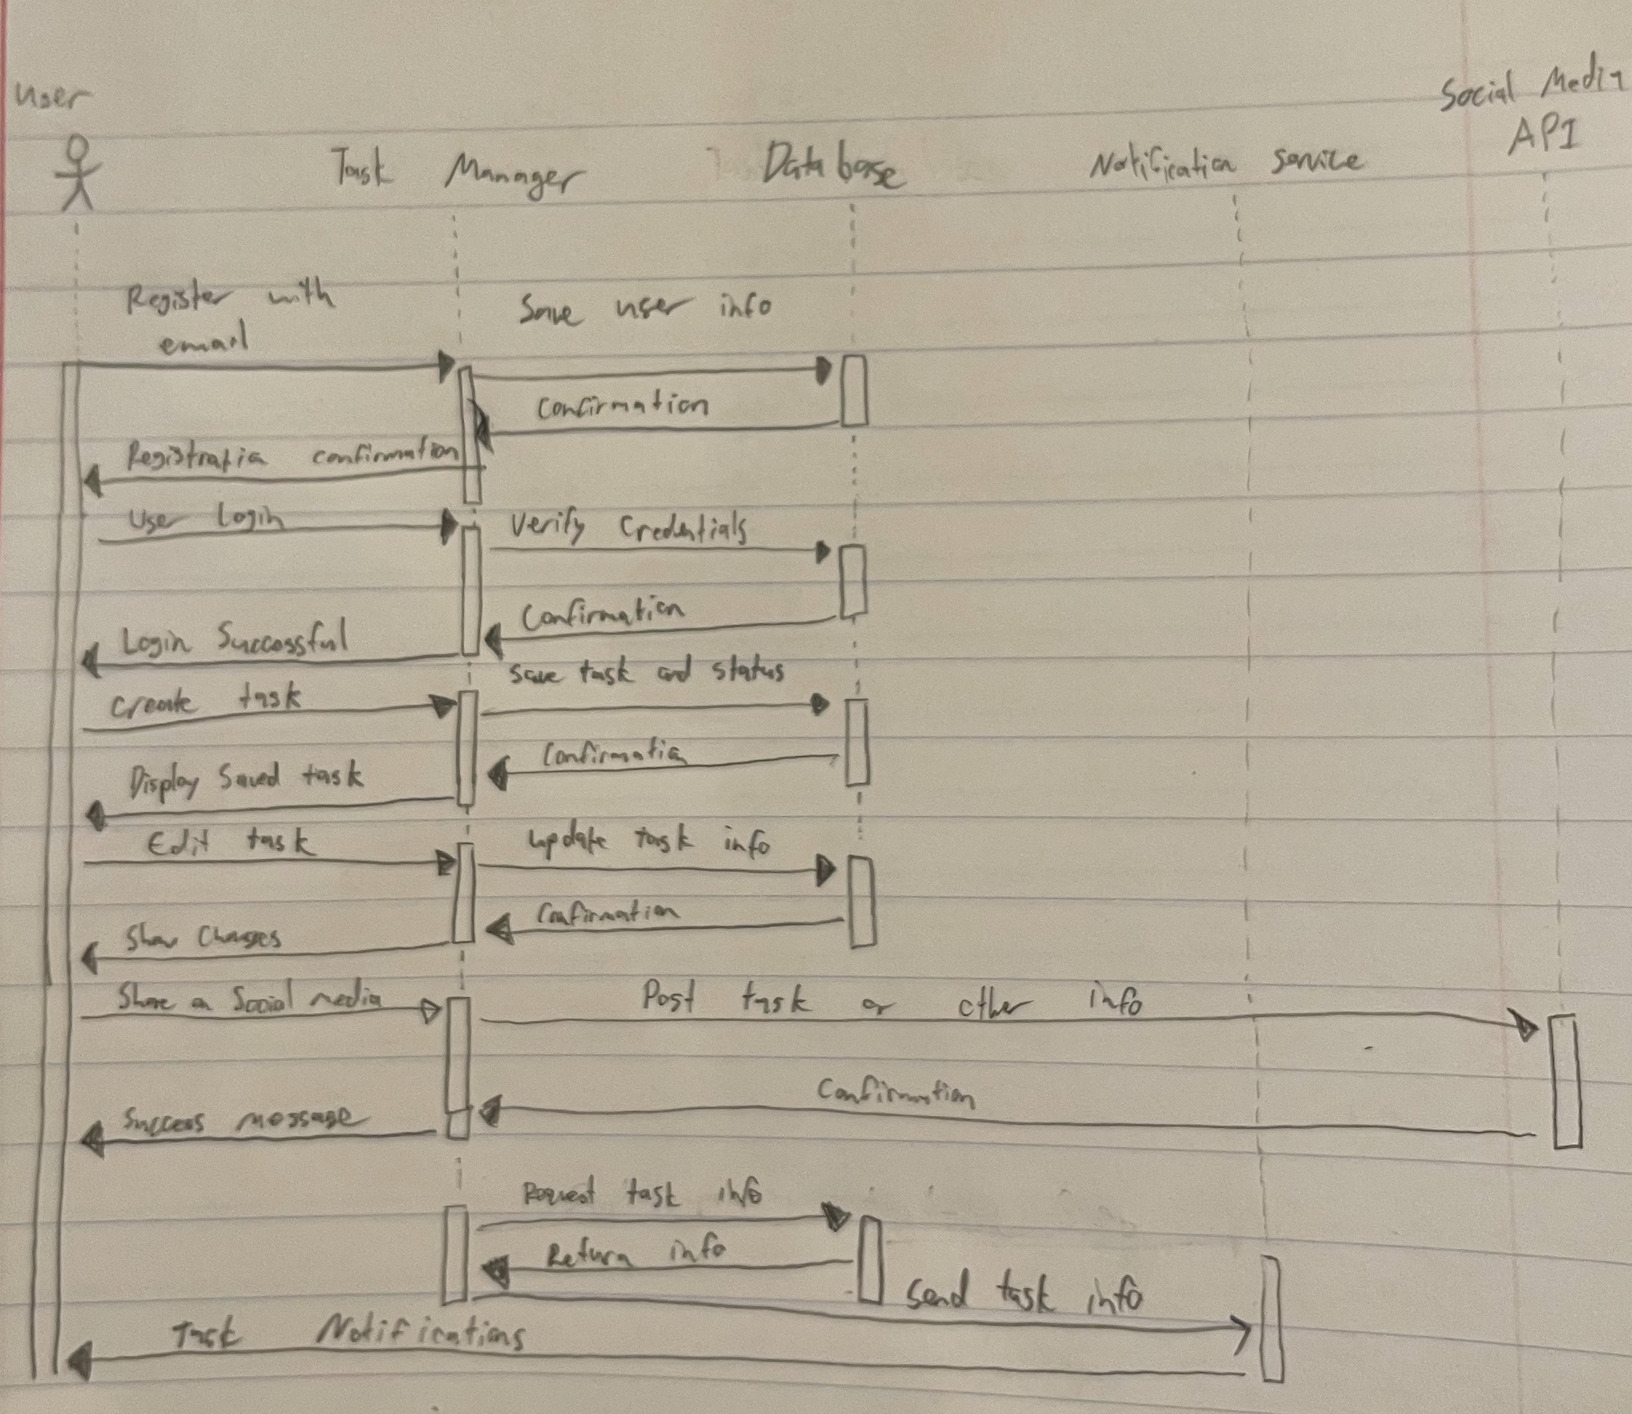 User
Social Media
API
Task Manager
Database
Notification service
Register with
email
Save user info
Confirmation
Registratia confirmation
User Login
Verify Credentials
Confirmation
Login Successful
Save task and status
Create task
Confirmatia
Display Saved task
Edit task
Update task info
Confirmation
Show Changes
Share on Social media
Post task or other info
Confirmation
Success message
Request task info
Return info
Send task info
Task Notifications